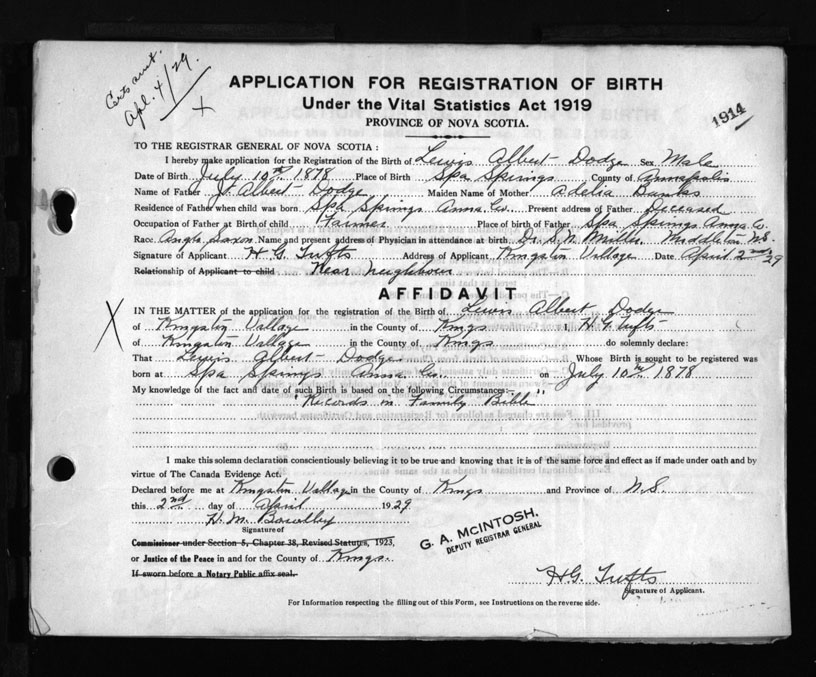 Certs
Apl. 4/29.
X
APPLICATION FOR REGISTRATION OF BIRTH
Under the Vital Statistics Act 1919
PROVINCE OF NOVA SCOTIA.
1914
TO THE REGISTRAR GENERAL OF NOVA SCOTIA :
I hereby make application for the Registration of the Birth of Lewis Albert Dodge Sex Male
Date of Birth July 10th 1878 Place of Birth Spa Springs County of Annapolis
Name of Father J. Albert Dodge Maiden Name of Mother Adelia Banks
Residence of Father when child was born Spa Springs Anna. Co. Present address of Father Deceased
Occupation of Father at Birth of child Farmer Place of birth of Father Spa Springs Anna Co.
Race Anglo Saxon Name and present address of Physician in attendance at birth Dr. S. N. Miller Middleton N.S.
Signature of Applicant H G Tufts Address of Applicant Kingston Village Date April 2nd/29
Relationship of Applicant to child Near Neighbour
AFFIDAVIT
X
IN THE MATTER of the application for the registration of the Birth of Lewis Albert Dodge
of Kingston Village in the County of Kings I, H. G. Tufts
of Kingston Village in the County of Kings do solemnly declare:
That Lewis Albert Dodge Whose Birth is sought to be registered was
born at Spa Springs Anna. Co. on July 10th 1878
My knowledge of the fact and date of such Birth is based on the following Circumstances:—
"Records in Family Bible"
I make this solemn declaration conscientiously believing it to be true and knowing that it is of the same force and effect as if made under oath and by
virtue of The Canada Evidence Act.
Declared before me at Kingston Village in the County of Kings and Province of N.S.
this 2nd day of April 1929
H. M. Bowlby
Signature of
Commissioner under Section 5, Chapter 38, Revised Statutes, 1923,
or Justice of the Peace in and for the County of Kings.
If sworn before a Notary Public affix seal.
G. A. MCINTOSH,
DEPUTY REGISTRAR GENERAL
H G. Tufts
Signature of Applicant.
For Information respecting the filling out of this Form, see Instructions on the reverse side.